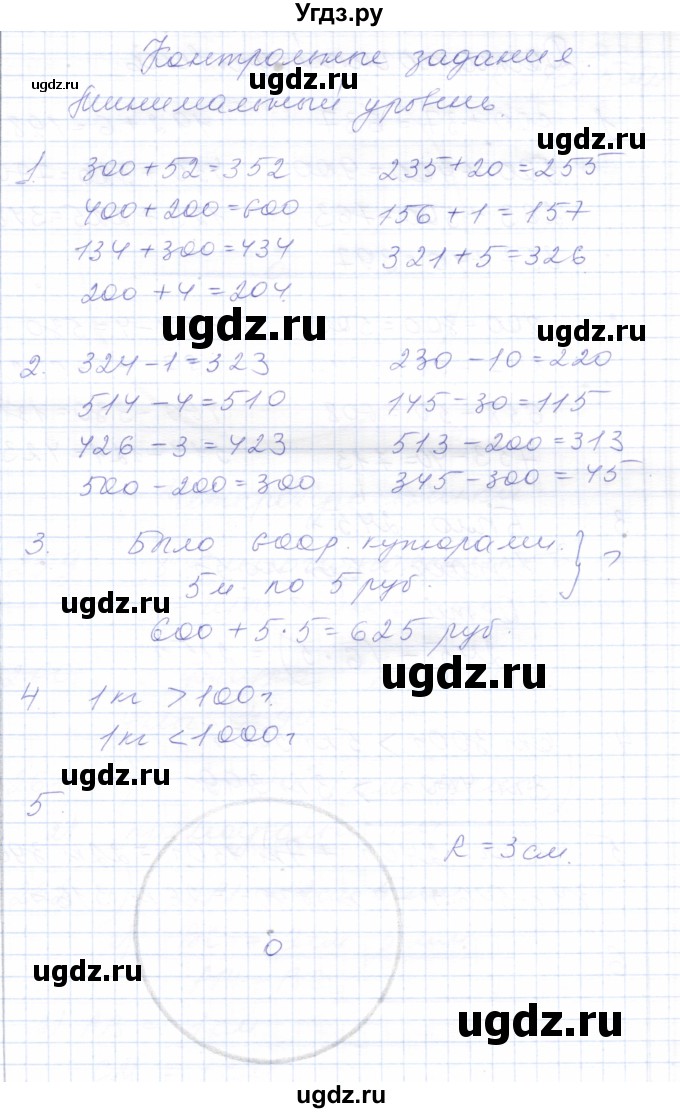 Угдз.ру
Контрольные задания.
Минимальный уровень.
1 300 + 52 = 352 235 + 20 = 255
400 + 200 = 600 156 + 1 = 157
134 + 300 = 434 321 + 5 = 326
200 + 4 = 204
2. 324 - 1 = 323 230 - 10 = 220
514 - 4 = 510 145 - 30 = 115
426 - 3 = 423 513 - 200 = 313
500 - 200 = 300 345 - 300 = 45
3. Было 600р. купюрами. } ?
5м по 5 руб.
600 + 5 · 5 = 625 руб.
4 1кг > 100г.
1кг < 1000г
5.
R = 3 см.
O
ugdz.ru
ugdz.ru
ugdz.ru
ugdz.ru
ugdz.ru
ugdz.ru
ugdz.ru
ugdz.ru
ugdz.ru
ugdz.ru